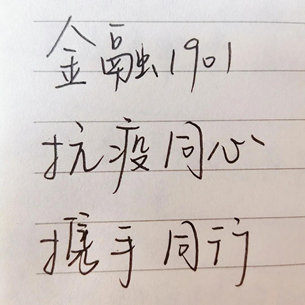 金融1901
抗疫同心
携手同行